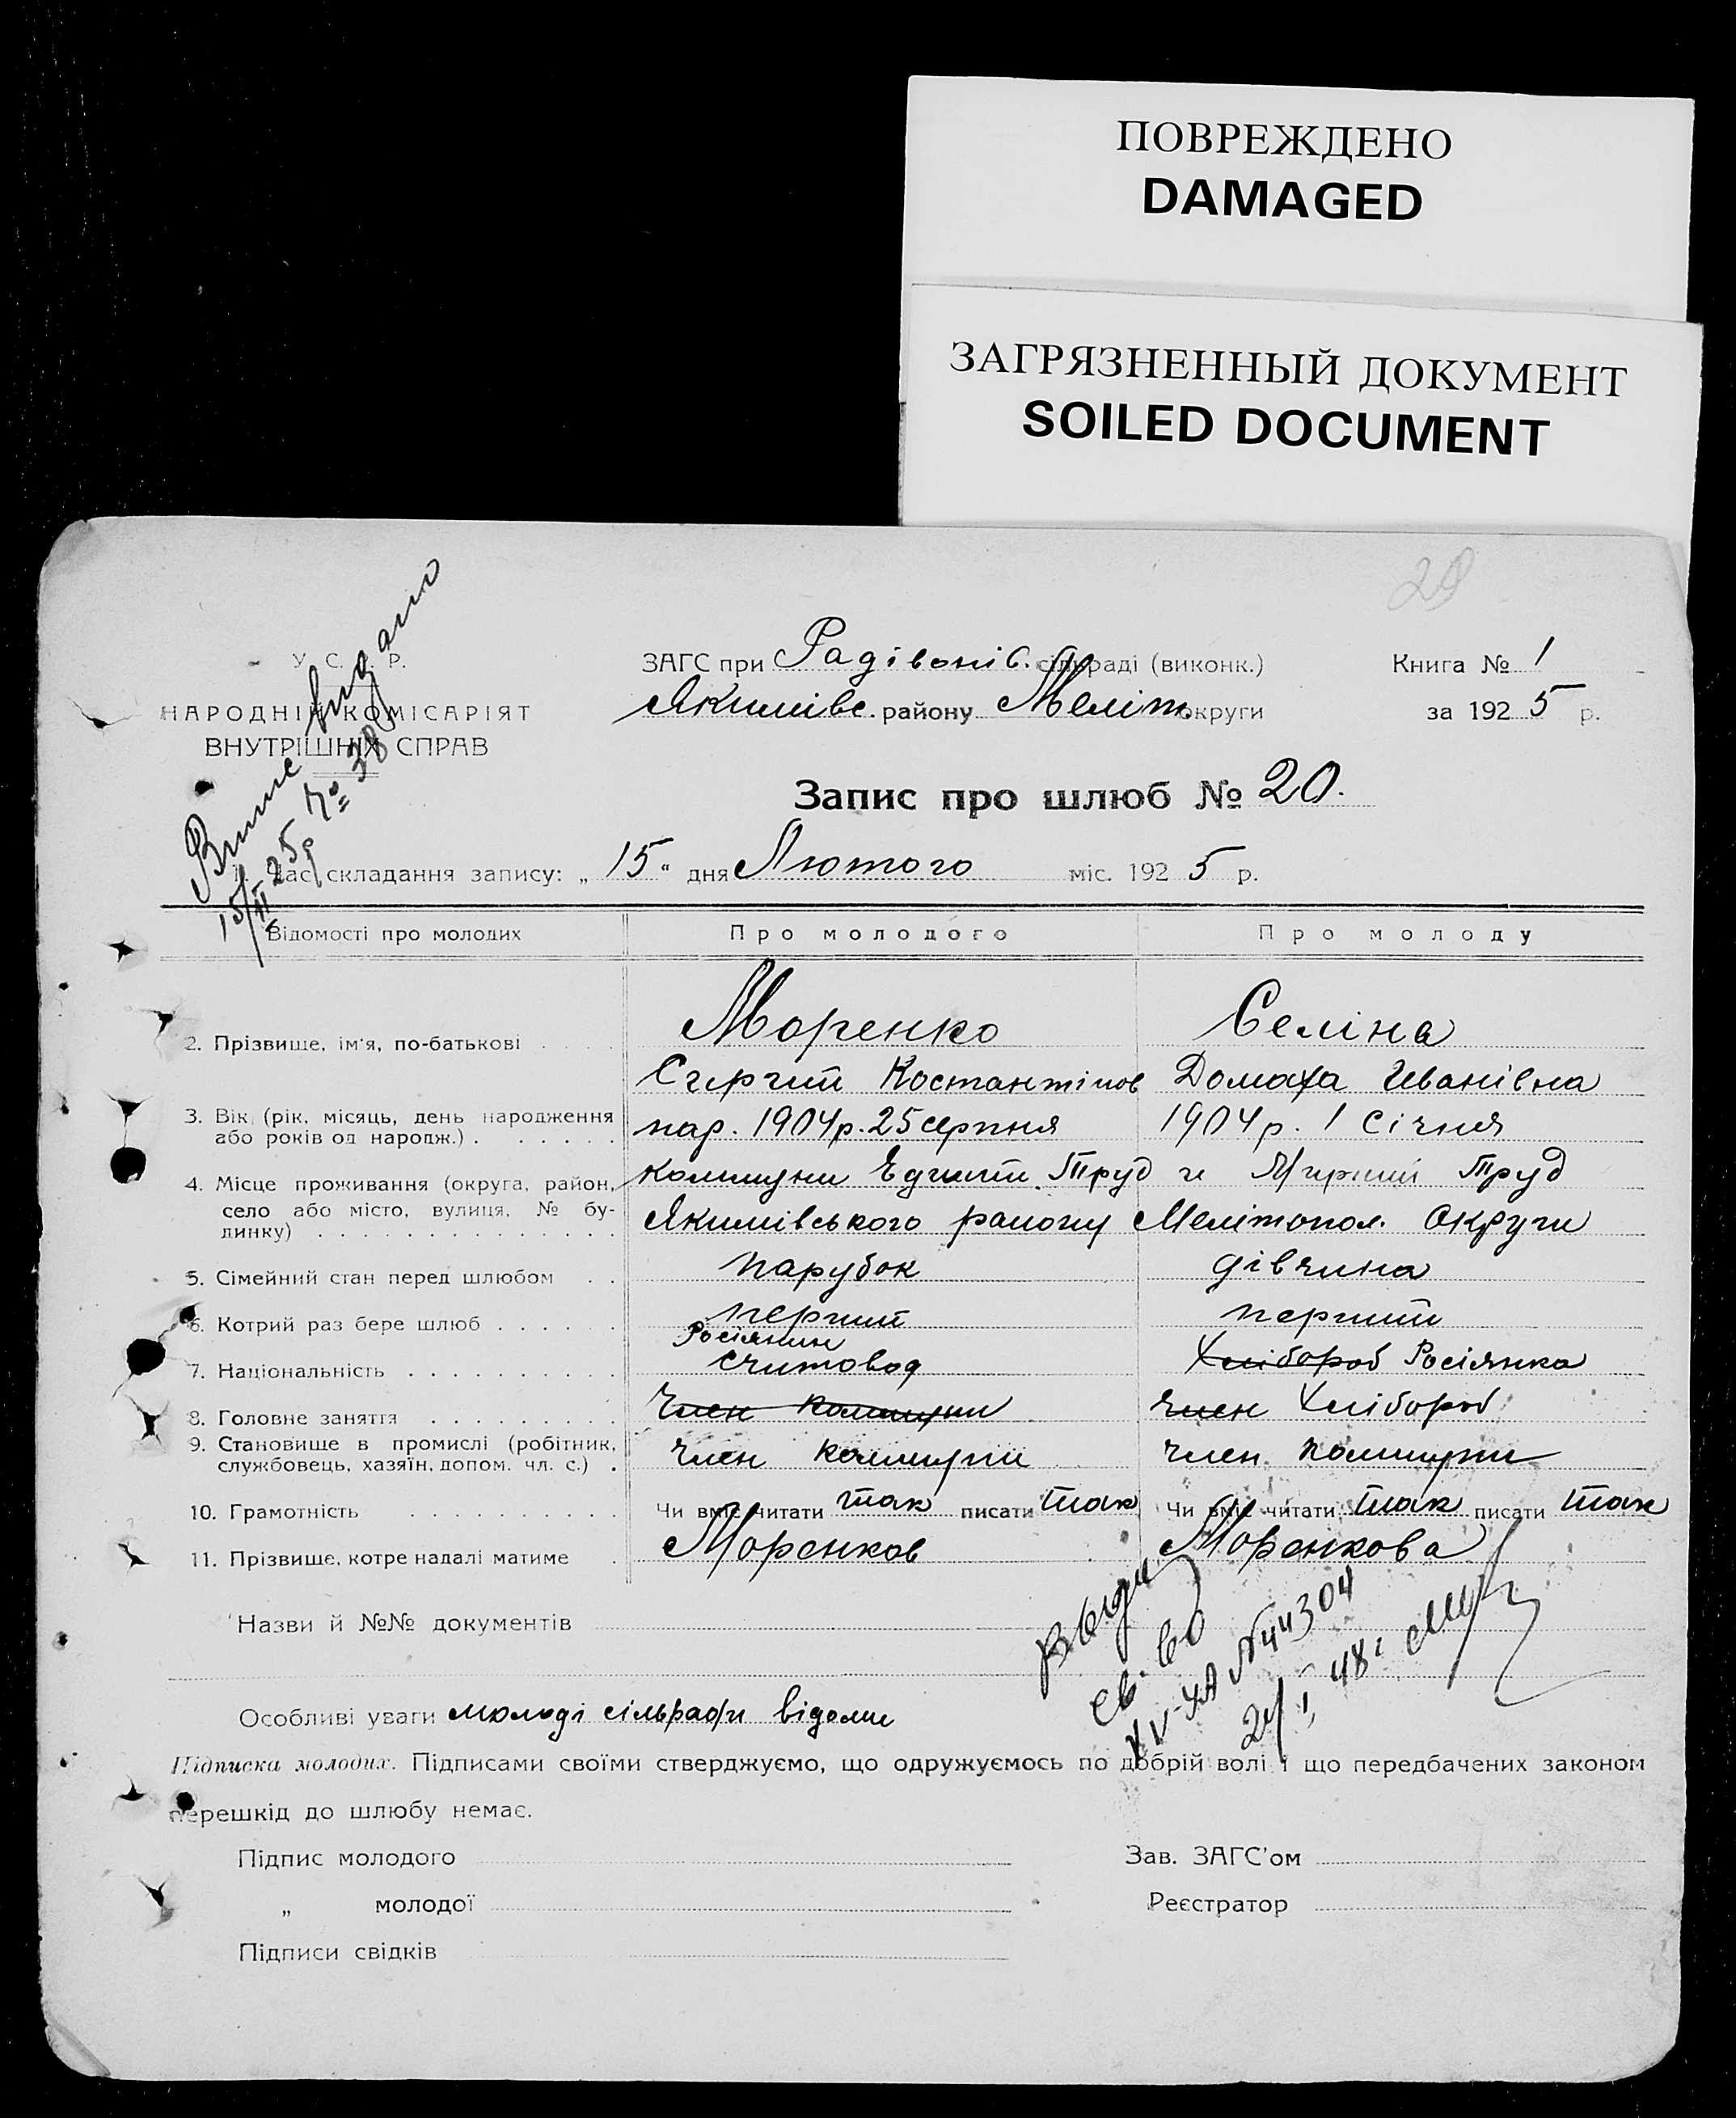 ПОВРЕЖДЕНО
DAMAGED
ЗАГРЯЗНЕННЫЙ ДОКУМЕНТ
SOILED DOCUMENT
28
У. С. Р. Р.
НАРОДНІЙ КОМІСАРІЯТ
ВНУТРІШНІХ СПРАВ
Випис видано
15/II 25р № 38
ЗАГС при Радівонів. сільраді (виконк.)
Якимівс. району Меліт. округи
Книга № 1
за 1925 р.
Запис про шлюб № 20.
1. Час складання запису: „15“ дня Лютого міс. 1925 р.
Відомості про молодих Про молодого Про молоду
2. Прізвище, ім'я, по-батькові Моренко Селіна
Сергий Костантінов Домаха Иванівна
3. Вік (рік, місяць, день народження або років од народж.) нар. 1904р. 25 серпня 1904р. 1 Січня
4. Місце проживання (округа, район, село або місто, вулиця, № будинку) Коммуни Труд и Труд
Якимівського району Мелітопол. Округи
5. Сімейний стан перед шлюбом парубок дівчина
6. Котрий раз бере шлюб перший перший
7. Національність Росіянин считовод Хлібороб Росіянка
8. Головне заняття Член коммуни Член Хлібороб
9. Становище в промислі (робітник, службовець, хазяїн, допом. чл. с.) Член коммуни Член коммуни
10. Грамотність Чи вміє читати так писати так Чи вміє читати так писати так
11. Прізвище, котре надалі матиме Моренков Моренкова
Назви й №№ документів
св-во
№ 44304
24/I 48г
Особливі уваги молоді сільради відоми
Підписка молодих. Підписами своїми стверджуємо, що одружуємось по добрій волі і що передбачених законом
перешкід до шлюбу немає.
Підпис молодого Зав. ЗАГС'ом
„ молодої Реєстратор
Підписи свідків